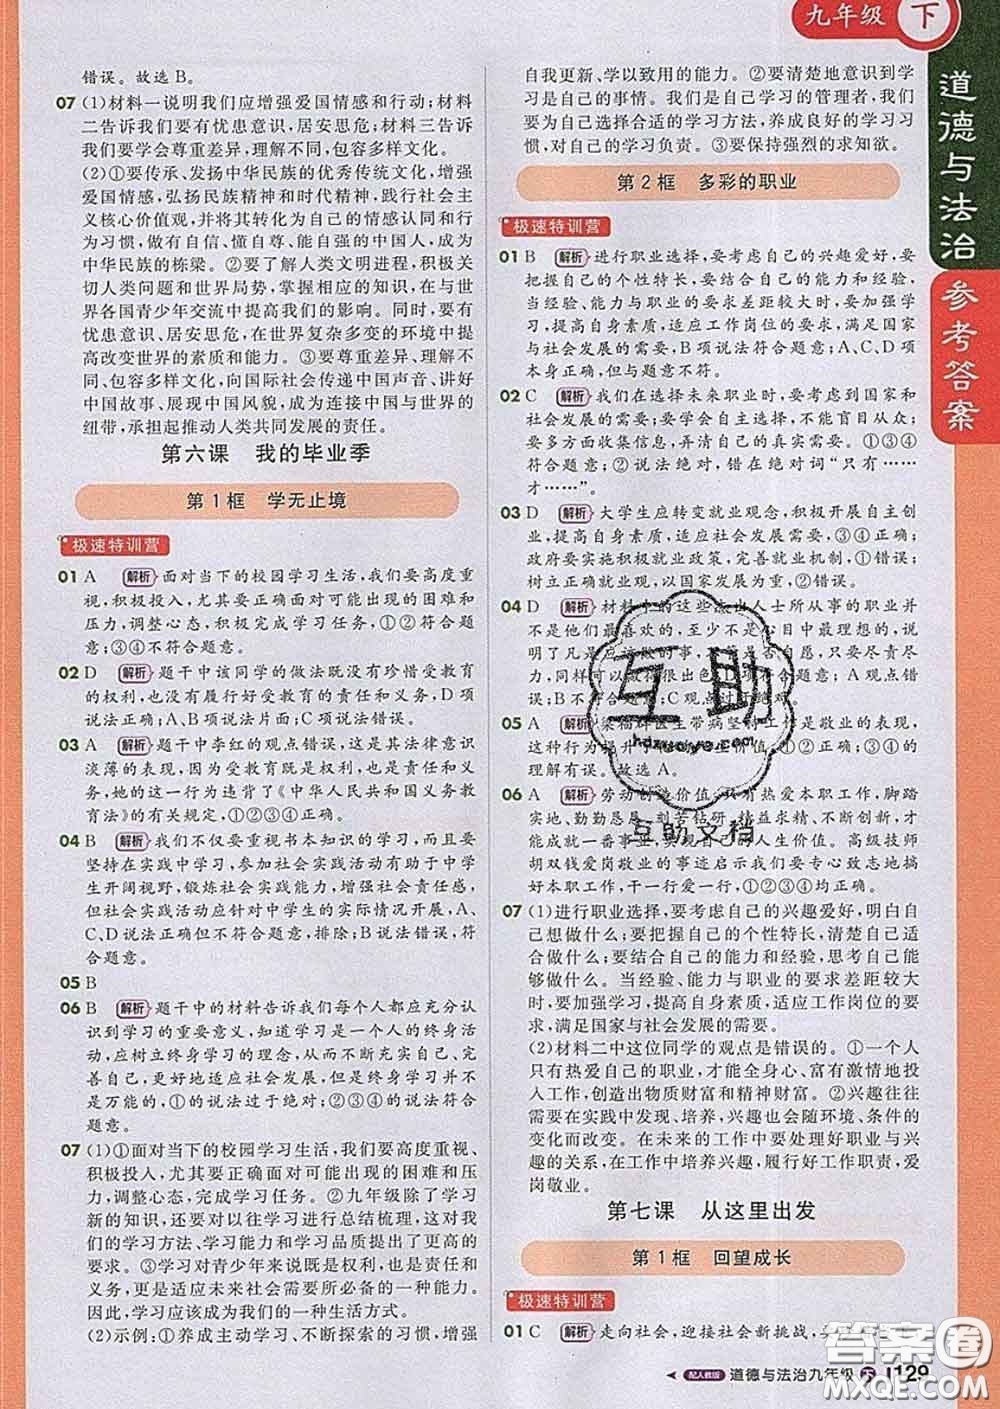 九年级 下
道德与法治
参考答案
错误。故选B。
07 (1)材料一说明我们应增强爱国情感和行动;材料
二告诉我们要有忧患意识,居安思危;材料三告诉
我们要学会尊重差异,理解不同,包容多样文化。
(2)①要传承、发扬中华民族的优秀传统文化,增强
爱国情感,弘扬民族精神和时代精神,践行社会主
义核心价值观,并将其转化为自己的情感认同和行
为习惯,做有自信、懂自尊、能自强的中国人,成为
中华民族的栋梁。②要了解人类文明进程,积极关
切人类问题和世界局势,掌握相应的知识,在与世
界各国青少年交流中提高我们的影响。同时,要有
忧患意识、居安思危,在世界复杂多变的环境中提
高改变世界的素质和能力。③要尊重差异、理解不
同、包容多样文化,向国际社会传递中国声音、讲好
中国故事、展现中国风貌,成为中国与世界的
纽带,承担起推动人类共同发展的责任。
第六课 我的毕业季
第1框 学无止境
极速特训营
01 A 解析 面对当下的校园学习生活,我们要高度重
视,积极投入,尤其要正确面对可能出现的困难和
压力,调整心态,积极完成学习任务,①②符合题
意;③④不符合题意。
02 D 解析 题干中该同学的做法既没有珍惜受教育
的权利,也没有履行好受教育的责任和义务,D项
说法正确;A、B项说法片面;C项说法错误。
03 A 解析 题干中李红的观点错误,这是其法律意识
淡薄的表现,因为受教育既是权利,也是责任和义
务,她的这一行为违背了《中华人民共和国义务教
育法》的有关规定,①②④正确;③错误。
04 B 解析 我们不仅要重视书本知识的学习,而且要
坚持在实践中学习,参加社会实践活动有助于中学
生开阔视野,锻炼社会实践能力,增强社会责任感,
但社会实践活动应针对中学生的实际情况开展,A、
C、D说法正确但不符合题意,排除;B说法错误,符
合题意。
05 B
06 B 解析 题干中的材料告诉我们每个人都应充分认
识到学习的重要意义,知道学习是一个人的终身活
动,应树立终身学习的理念,从而不断充实自己、完
善自己,更好地适应社会发展,但是终身学习并不
是万能的,①的说法过于绝对;②③④的说法符合
题意。
07 (1)①面对当下的校园学习生活,我们要高度重视、
积极投入,尤其要正确面对可能出现的困难和压
力,调整心态,完成学习任务。②九年级除了学习
新的知识,还要对以往学习进行总结梳理,这对我
们的学习方法、学习能力和学习品质提出了更高的
要求。③学习对青少年来说既是权利,也是责任,
是适应未来社会需要所必备的一种能力。
因此,学习应该成为我们的一种生活方式。
(2)示例:①养成主动学习、不断探索的习惯,增强
自我更新、学以致用的能力。②要清楚地意识到学
习是自己的事情。我们是自己学习的管理者,我们
要为自己选择合适的学习方法,养成良好的学习习
惯,对自己的学习负责。③要保持强烈的求知欲。
第2框 多彩的职业
极速特训营
01 B 解析 进行职业选择,要考虑自己的兴趣爱好,要
把握自己的个性特长,要结合自己的能力和经验,
当经验、能力与职业的要求差距较大时,要加强学
习,提高自身素质,适应工作岗位的要求,满足国家
与社会发展的需要,B项说法符合题意;A、C、D项
本身正确,但与题意不符。
02 C 解析 我们在选择未来职业时,要考虑到国家和
社会发展的需要;要学会自主选择,不能盲目从众;
要多方面收集信息,弄清自己的真实需要。①③④
符合题意;②说法绝对,错在绝对词“只有……
才……”。
03 D 解析 大学生应转变就业观念,积极开展自主创
业,提高自身素质,适应社会发展,③④正确;
政府要实施积极就业政策,完善就业机制,①错误;
树立正确就业观,以国家发展为重,②错误。
04 D 解析 材料中的这些杰出人士所从事的职业并
不是他们最喜欢的,至少不是心甘情愿的,但这说
明了凡是应该做的事,不是个人喜欢,只要尽责尽
力,同样可以做得很出色,D项正确;A观点错
误;B不符合题意;C观点过于绝对。
05 A 解析 梁福群医生带病坚持工作是敬业的表现,
这种行为提升了他的人生价值,①②正确;③④
理解有误。故选A。
06 A 解析 劳动创造价值,只有热爱本职工作,脚踏
实地、勤勤恳恳、刻苦钻研、精益求精、不断创新,才
能成就一番事业,实现自己的人生价值。高级技师
胡双钱爱岗敬业的事迹启示我们要专心致志地搞
好本职工作,干一行爱一行,①②③④均正确。
07 (1)进行职业选择,要考虑自己的兴趣爱好,明白自
己想做什么;要把握自己的个性特长,清楚自己适
合做什么;要结合自己的能力和经验,思考自己能
够做什么。当经验、能力与职业的要求差距较大
时,要加强学习,提高自身素质,适应工作岗位的要
求,满足国家与社会发展的需要。
(2)材料二中这位同学的观点是错误的。①一个人
只有热爱自己的职业,才能全身心、富有激情地投
入工作,创造出物质财富和精神财富。②兴趣往往
需要在实践中发现、培养,兴趣也会随环境、条件的
变化而改变。在未来的工作中要处理好职业与兴
趣的关系,在工作中培养兴趣,履行好工作职责,爱
岗敬业。
第七课 从这里出发
第1框 回望成长
极速特训营
01 C 解析 走向社会,迎接社会新挑战,
配人教版 道德与法治九年级 下 129
互助
hdzuoye.com
互助文档
答案圈
MXQE.COM